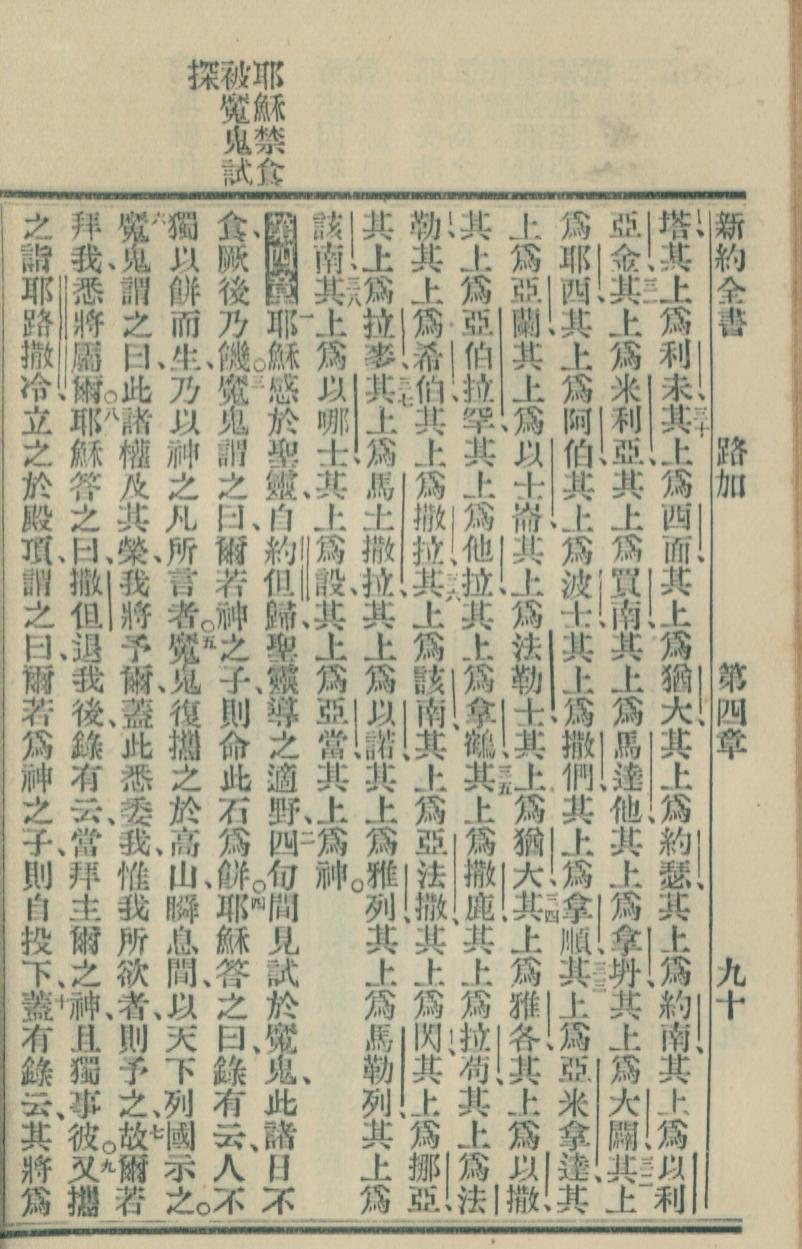 新約全書 路加 第四章 九十
塔、其上爲利未、三十其上爲西面、其上爲猶大、其上爲約瑟、其上爲約南、其上爲以利
亞金、三一其上爲米利亞、其上爲買南、其上爲馬達他、其上爲拿坍、其上爲大闢、三二其上
爲耶西、其上爲阿伯、其上爲波士、其上爲撒們、其上爲拿順、三三其上爲亞米拿達、其
上爲亞蘭、其上爲以士崙、其上爲法勒士、其上爲猶大、三四其上爲雅各、其上爲以撒、
其上爲亞伯拉罕、其上爲他拉、其上爲拿鶴、三五其上爲撒鹿、其上爲拉苟、其上爲法
勒、其上爲希伯、其上爲撒拉、三六其上爲該南、其上爲亞法撒、其上爲閃、其上爲挪亞、
其上爲拉麥、三七其上爲馬土撒拉、其上爲以諾、其上爲雅列、其上爲馬勒列、其上爲
該南、三八其上爲以哪士、其上爲設、其上爲亞當、其上爲神。
耶穌禁食
被魔鬼試
探
第四章 一耶穌感於聖靈、自約但歸、聖靈導之適野、二四旬間見試於魔鬼、此諸日不
食、厥後乃饑。三魔鬼謂之曰、爾若神之子、則命此石爲餅。四耶穌答之曰、錄有云、人不
獨以餅而生、乃以神之凡所言者。五魔鬼復攜之於高山、瞬息間、以天下列國示之。
六魔鬼謂之曰、此諸權及其榮、我將予爾、蓋此悉委我、惟我所欲者、則予之、七故爾若
拜我、悉將屬爾。八耶穌答之曰、撒但退我後、錄有云、當拜主爾之神、且獨事彼。九又攜
之詣耶路撒冷、立之於殿頂、謂之曰、爾若爲神之子、則自投下、十蓋有錄云、其將爲